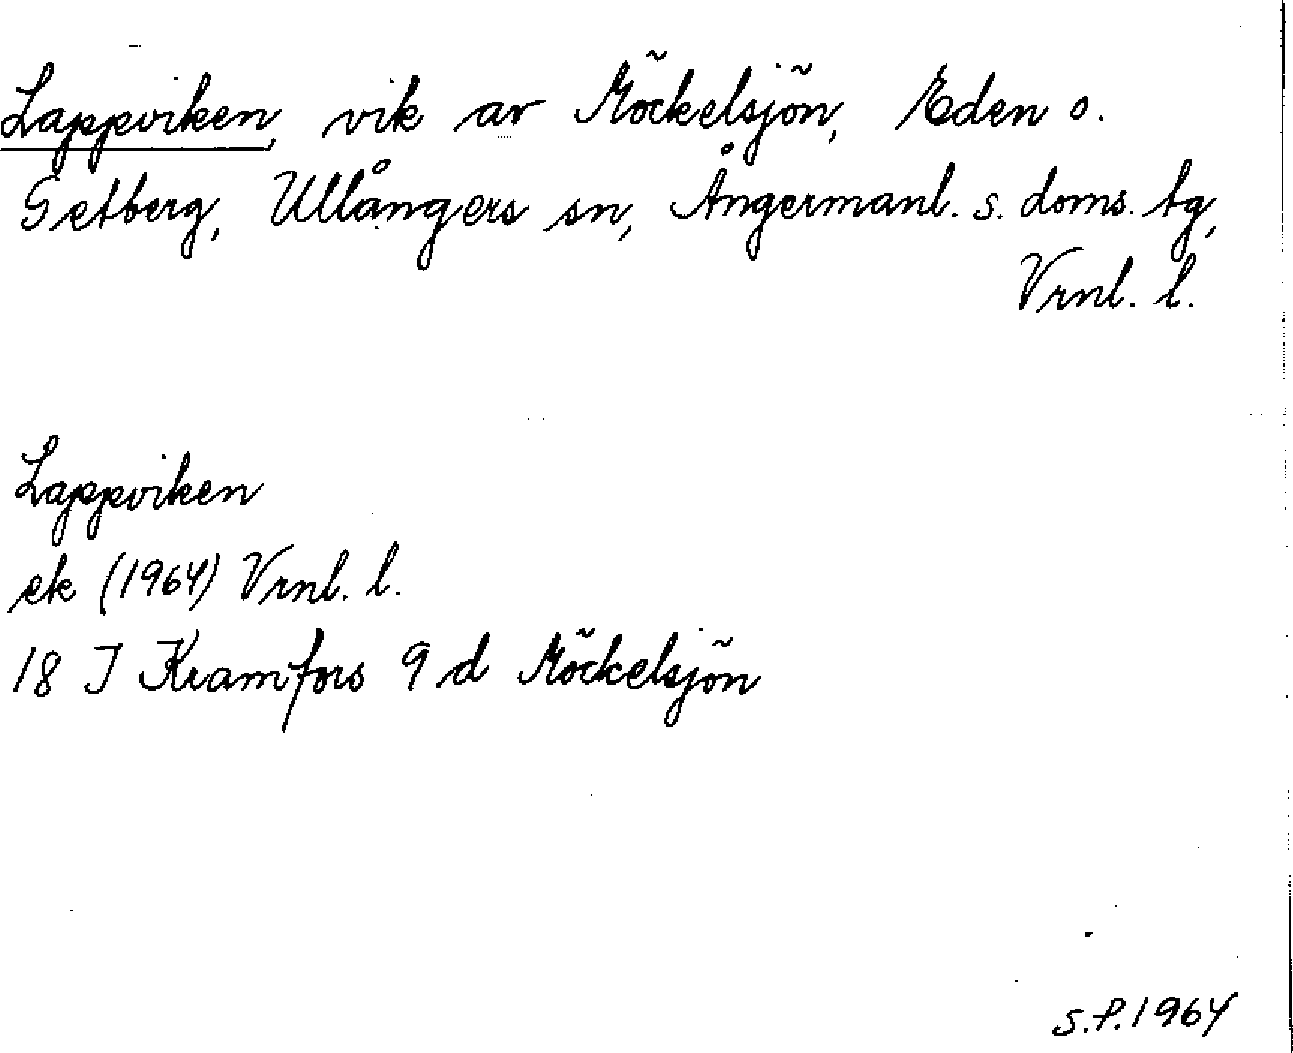 Lappviken, vik av Möckelsjön, Eden o.
Getberg, Ullångers sn, Ångermanl. s. doms. tg,
Vrnl. l.
Lappviken
ek (1964) Vrnl. l.
18 I Kramfors 9 d Möckelsjön
S.F. 1964